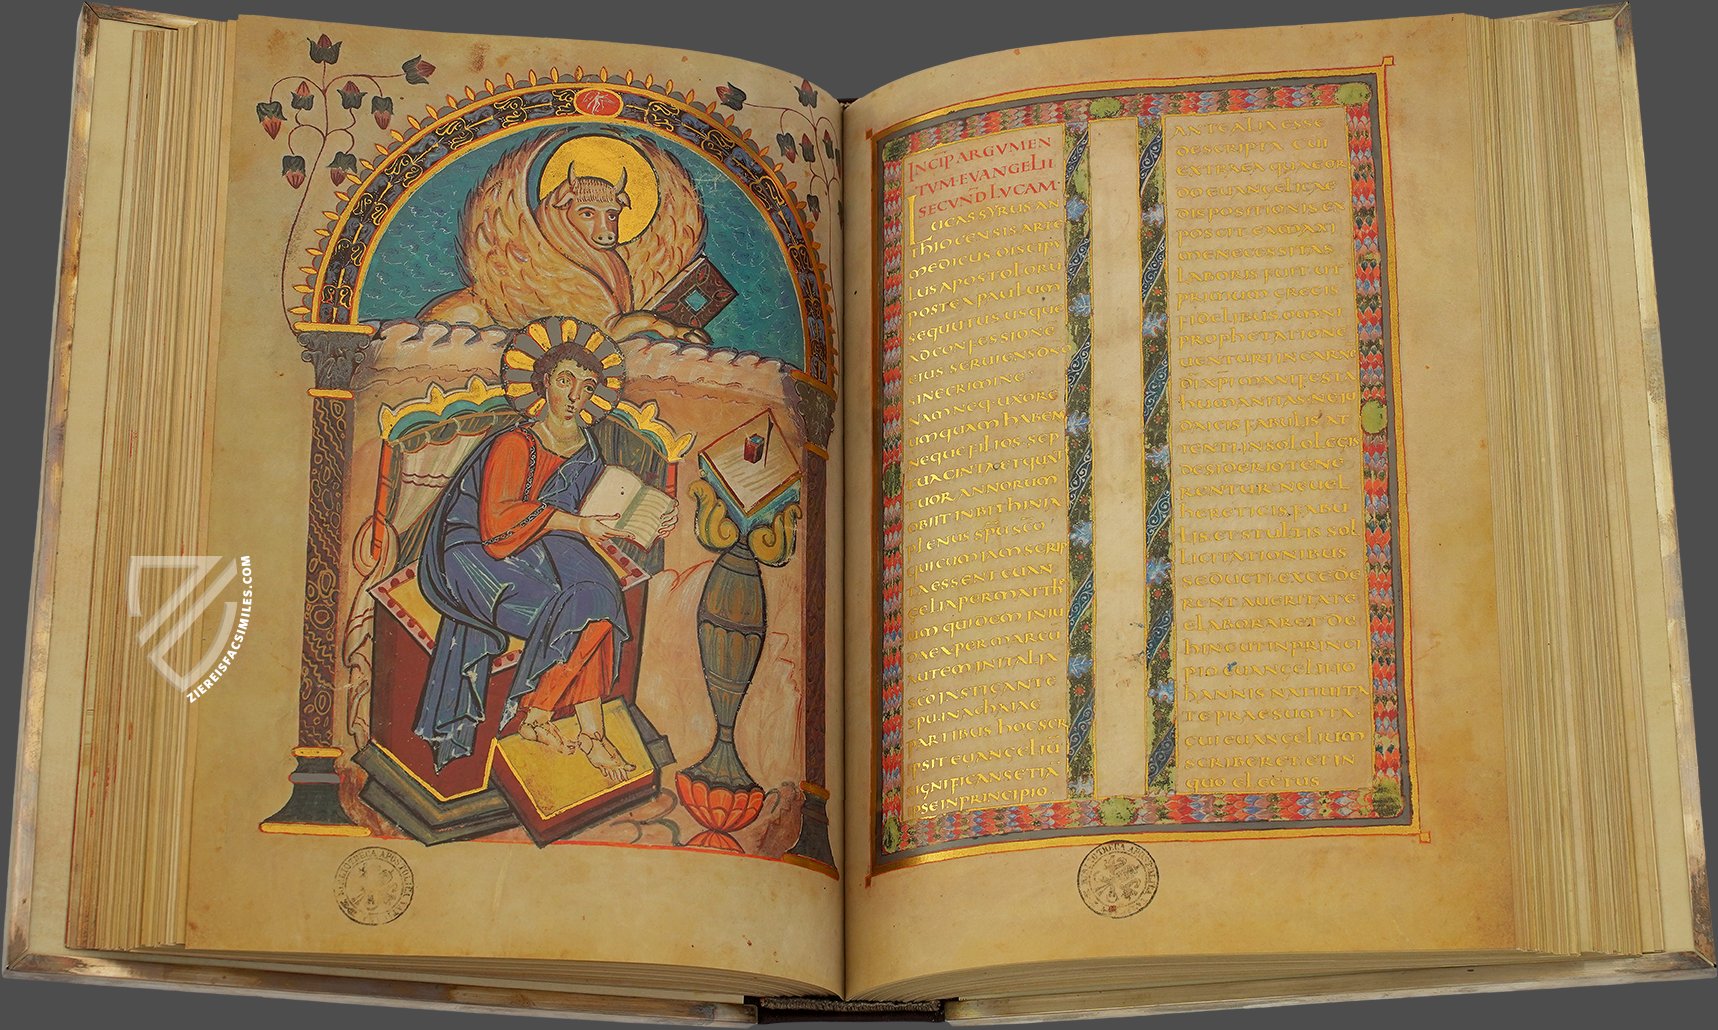 INCIP ARGUMEN
TUM·EVANGELII
SECUND LUCAM·
LUCAS SYRUS AN
THIOCENSIS ARTE
MEDICUS DISCIPU
LUS APOSTOLORU
POSTEA PAULUM
SEQUUTUS USQUE
AD CONFESSIONE
EIUS SERUIENS DNO
SINE CRIMINE·
NAM NEQ· UXORE
UMQUAM HABENS
NEQUE FILIOS· SEP
TUAGINTA ET QUAT
TUOR ANNORUM
OBIIT IN BITHINIA
PLENUS SPU SCO·
QUI CUM IAM SCRIP
TA ESSENT EUAN
GELIA PER MATTHE
UM QUIDEM IN IU
DAEA PER MARCU
AUTEM IN ITALIA
SCO INSTIGANTE
SPU IN ACHAIAE
PARTIBUS HOC SCR
IPSIT EVANGELIU
SIGNIFICANS ETIA
IPSE IN PRINCIPIO
ANTE ALIA ESSE
DESCRIPTA CUI
EXTRA EA QUAE OR
DO EUANGELICAE
DISPOSITIONIS EX
POSCIT EA MAXI
ME NECESSITAS
LABORIS FUIT UT
PRIMUM GRECIS
FIDELIBUS OMNI
PROPHETATIONE
UENTURI IN CARNE
DI XPI MANIFESTA
HUMANITAS· NE IU
DAICIS FABULIS AT
TENTI· IN SOLO LEGIS
DESIDERIO TENE
RENTUR· NE UEL
HERETICIS FABU
LIS· ET STULTIS SOL
LICITATIONIBUS
SEDUCTI· EXCEDE
RENT A UERITATE
ELABORARET DE
HINC UT IN PRINCI
PIO EUANGELII IO
HANNIS NATIUITA
TE PRAESUMTA·
CUI EUANGELIUM
SCRIBERET· ET IN
QUO ELECTUS
ZIEREISFACSIMILES.COM